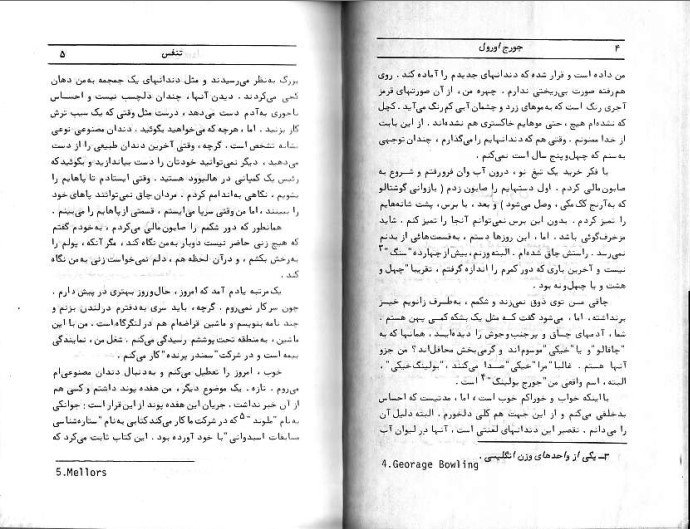 ۴ جورج اورول
من داده است و قرار شده که دندانهای جدیدم را آماده کند . روی
هم‌رفته صورت بی‌ریختی ندارم . چهره من ، از آن صورتهای قرمز
آجری رنگ است که به‌موهای زرد و چشمان آبی کم‌رنگ می‌آید. کچل
که نشده‌ام هیچ ، حتی موهایم خاکستری هم نشده‌اند . از این بابت
از خدا ممنونم . وقتی هم که دندانهایم را می‌گذارم ، چندان توجهی
به‌سنم که چهل‌وپنج سال است نمی‌کنم .
با فکر خرید یک تیغ نو ، درون آب وان فرورفتم و شروع به
صابون‌مالی کردم . اول دستهایم را صابون زدم ( بازوانی گوشتالو
که به‌آرنج کک‌مکی ، وصل می‌شود ) و بعد ، با برس ، پشت شانه‌هایم
را تمیز کردم . بدون این برس نمی‌توانم آنجا را تمیز کنم . شاید
مزخرف‌گوئی باشد . اما ، این روزها دستم ، به‌قسمت‌هائی از بدنم
نمی‌رسد . راستش چاق شده‌ام . البته وزنم ، بیش از چهارده "سنگ"۳
نیست و آخرین باری که دور کمرم را اندازه گرفتم ، تقریبا "چهل و
هشت و یا چهل‌ونه بود .
چاقی من توی ذوق نمی‌زند و شکمم ، به‌طرف زانویم خیز
برنداشته ، اما ، می‌شود گفت که مثل یک بشکه کمی پهن هستم .
شما ، آدمهای چاق و پرجنب‌وجوش را دیده‌ایید ، همانها که به
"چاقالو" و یا "خیکی" موسوم‌اند و گرمی‌بخش محافل‌اند؟ من جزو
آنها هستم . غالبا "مرا "خیکی" صدا می‌کنند . "بولینگ خیکی" .
البته ، اسم واقعی من "جورج بولینگ"۴ است .
با اینکه خواب و خوراکم خوب است ، اما ، مدتیست که احساس
بدخلقی می‌کنم و از این جهت هم کلی دلخورم . البته دلیل آن
را می‌دانم . تقصیر این دندانهای لعنتی است . آنها در لیوان آب
۳- یکی از واحدهای وزن انگلیسی .
4.Georage Bowling
تنفس ۵
بزرگ به‌نظر می‌رسیدند و مثل دندانهای یک جمجمه به‌من دهان
کجی می‌کردند . دیدن آنها ، چندان دلچسب نیست و احساس
ناجوری به‌آدم دست می‌دهد ، درست مثل وقتی که یک سیب ترش
گاز بزنید . اما ، هرچه که می‌خواهید بگوئید . دندان مصنوعی نوعی
نشانه تشخص است . گرچه ، وقتی آخرین دندان طبیعی را از دست
می‌دهید ، دیگر نمی‌توانید خودتان را دست بیاندازید و بگوئید که
رئیس یک کمپانی در هالیوود هستید . وقتی ایستادم تا پاهایم را
بشویم . نگاهی به‌اندامم کردم . مردان چاق نمی‌توانند پاهای خود
را ببینند ، اما من وقتی سرپا می‌ایستم ، قسمتی از پاهایم را می‌بینم .
همانطور که دور شکمم را صابون مالی می‌کردم ، به‌خودم گفتم
که هیچ زنی حاضر نیست دوبار به‌من نگاه کند ، مگر آنکه ، پولم را
به‌رخش بکشم ، و درآن لحظه هم ، دلم نمی‌خواست زنی به‌من نگاه
کند .
یک‌مرتبه یادم آمد که امروز ، حال‌وروز بهتری در پیش دارم .
چون سرکار نمی‌روم . گرچه ، باید سری به‌دفترم درلندن بزنم و
چند نامه بنویسم و ماشین قراضه‌ام هم در لنگرگاه است . من با این
ماشین ، به‌منطقه تحت پوشتم رسیدگی می‌کنم . شغل من ، نمایندگی
بیمه است و در شرکت "سمندر پرنده" کار می‌کنم .
خوب ، امروز را تعطیل می‌کنم و به‌دنبال دندان مصنوعی‌ام
می‌روم . تازه . یک موضوع دیگر ، من هفده پوند داشتم و کسی هم
از آن خبر نداشت . جریان این هفده پوند از این قرار است : جوانکی
به‌نام "ملورز"۵ که در شرکت ما کار می‌کند کتابی به‌نام "ستاره‌شناسی
مسابقات اسبدوانی" با خود آورده بود . این کتاب ثابت می‌کرد که
5.Mellors